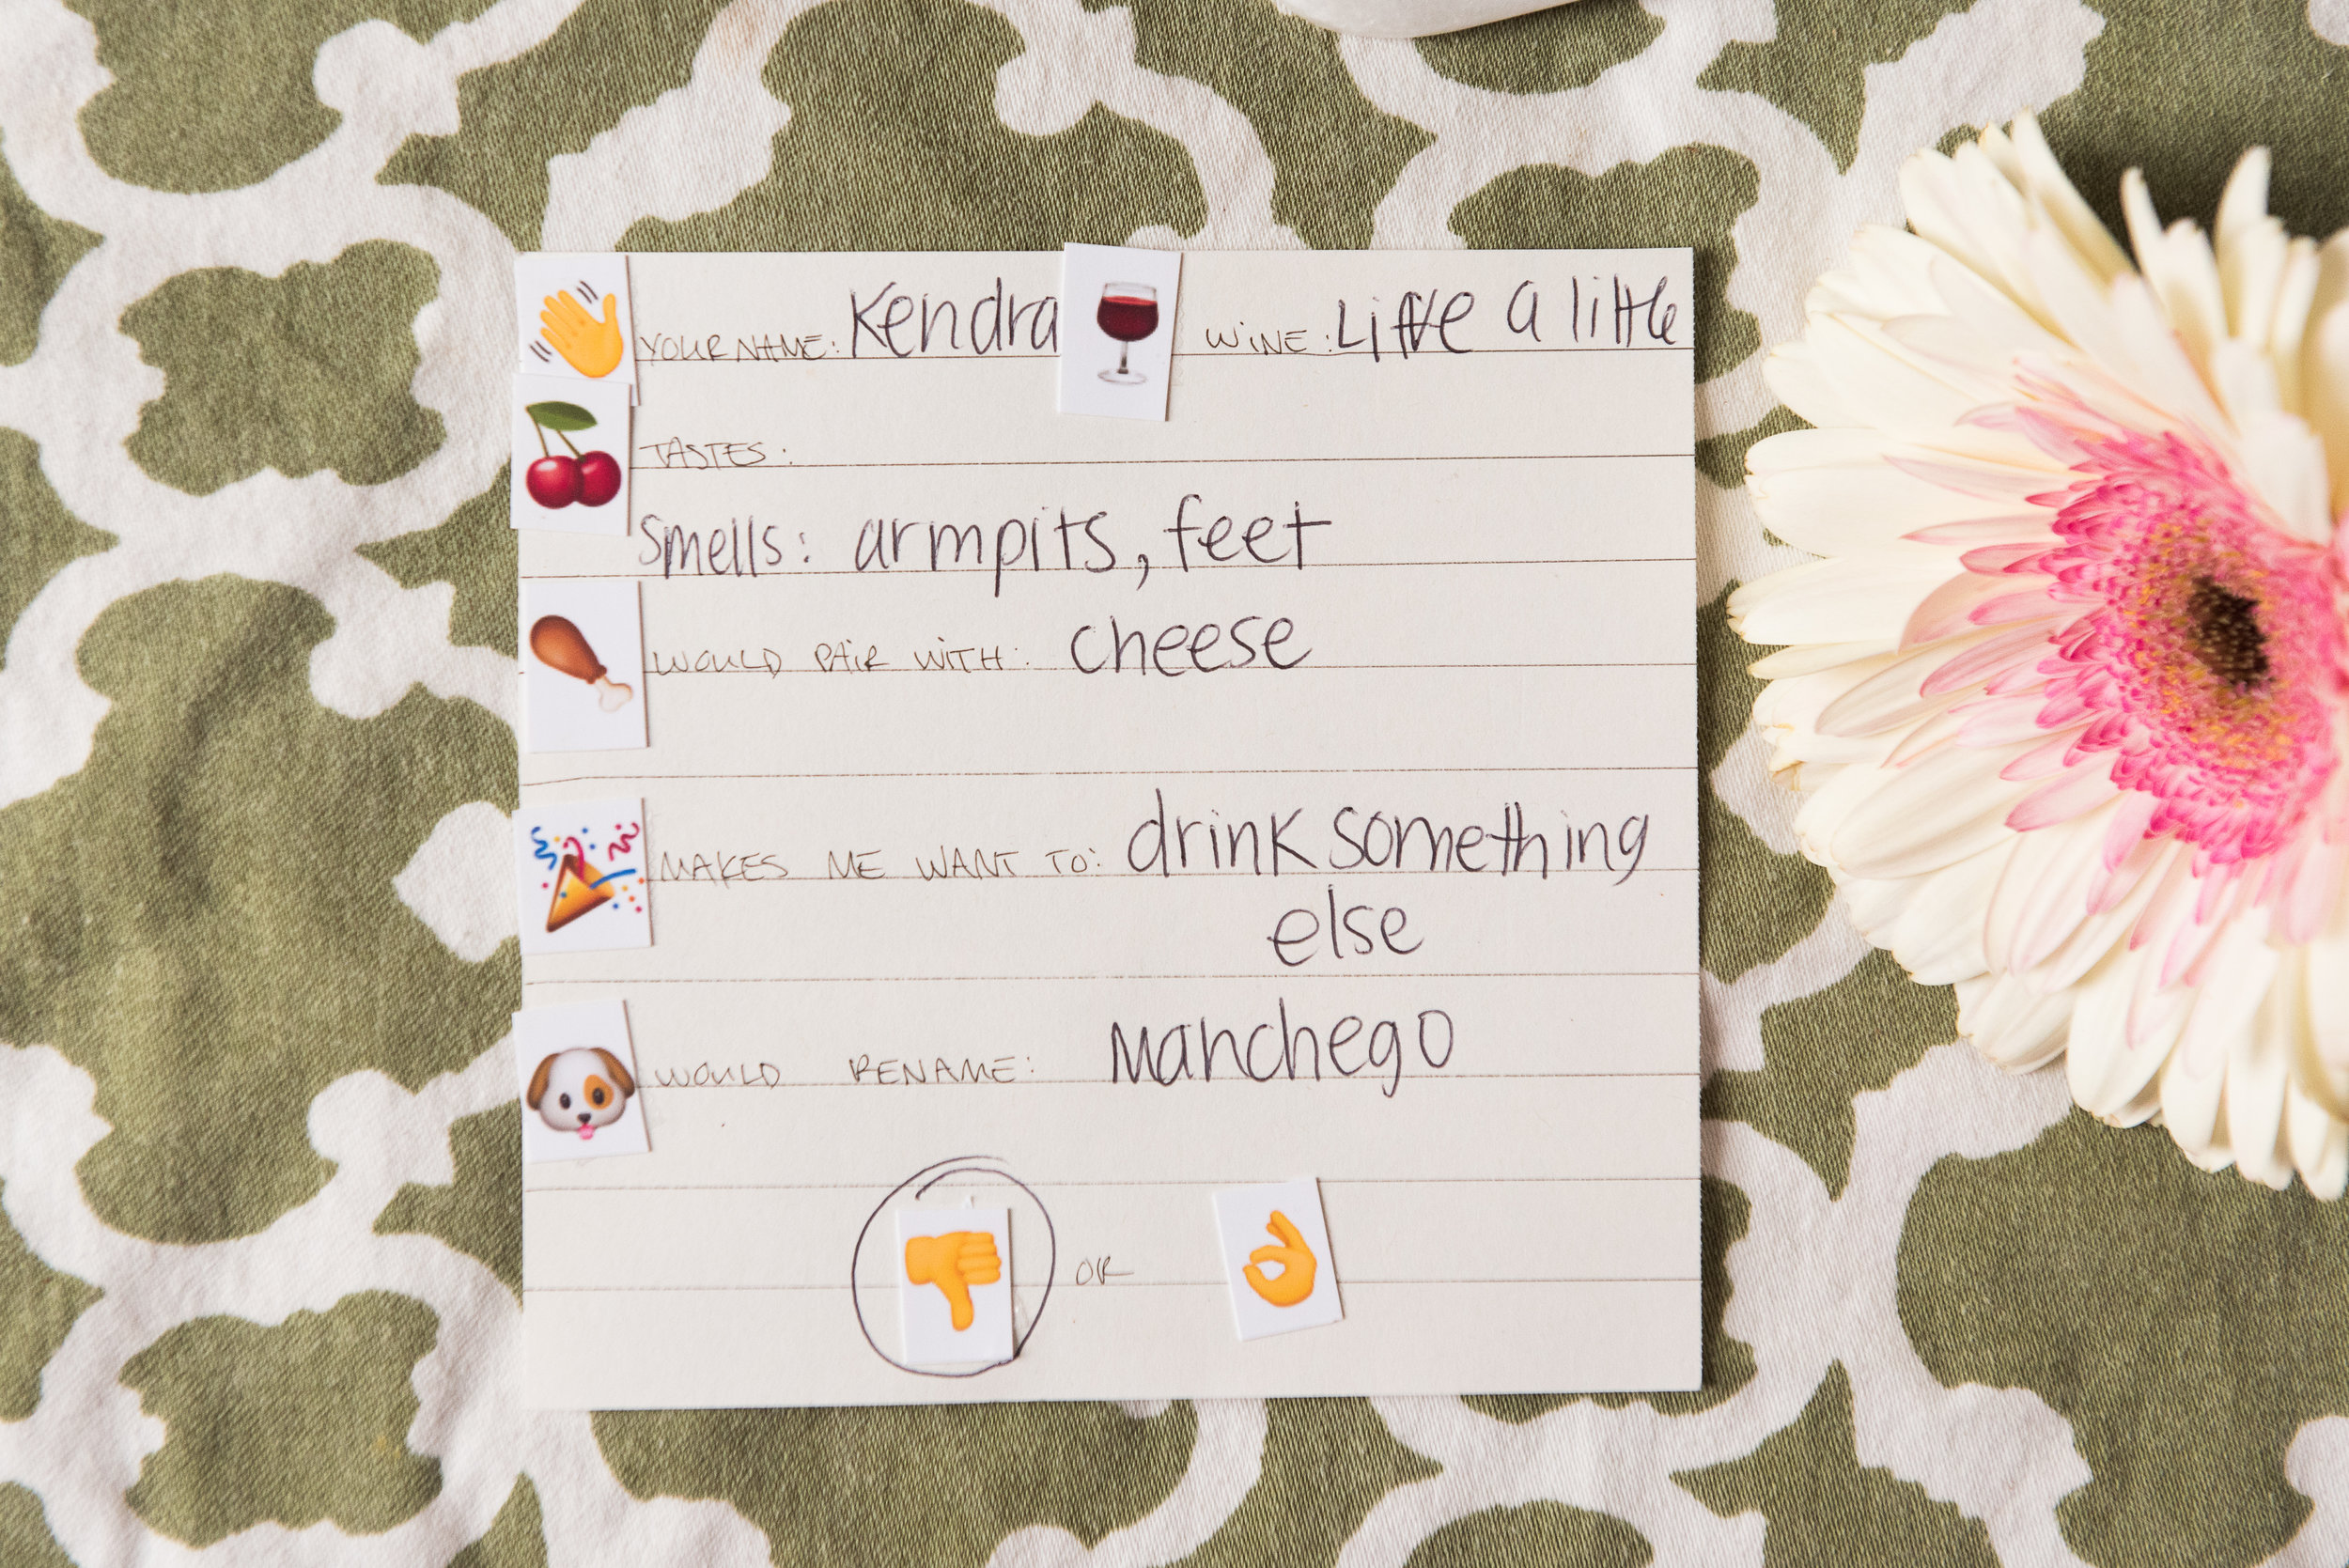 YOUR NAME: Kendra WINE: Live a little
TASTES:
Smells: armpits, feet
WOULD PAIR WITH: cheese
MAKES ME WANT TO: drink something
else
WOULD RENAME: Manchego
OR